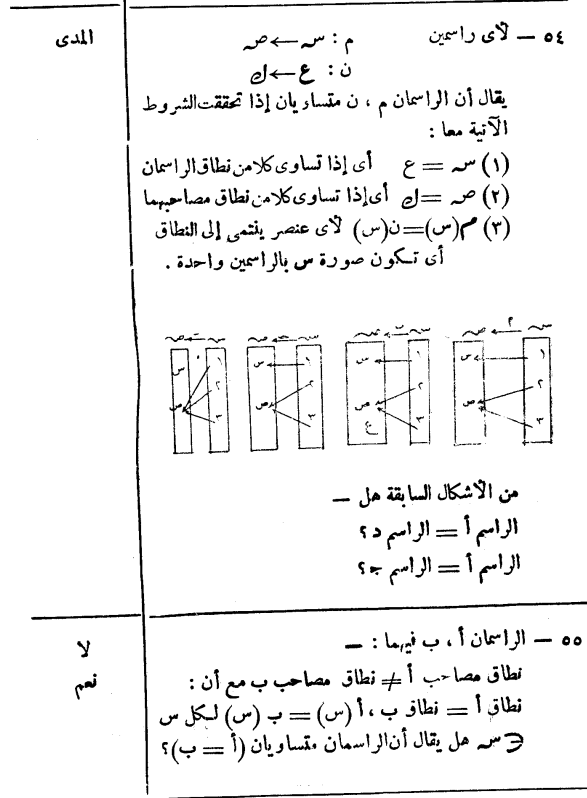 المدى
٥٤ — لأى راسمين م : س ← ص
ن : ع ← ك
يقال أن الراسمان م ، ن متساويان إذا تحققت الشروط
الآتية معا :
(١) س = ع أى إذا تساوى كلا من نطاق الراسمان
(٢) ص = ك أى إذا تساوى كلا من نطاق مصاحبهما
(٣) م(س)=ن(س) لأى عنصر ينتمى إلى النطاق
أى تكون صورة س بالراسمين واحدة .
س أ ص
س ص
س ص
س ص
١ س
٢ ص
٣
١ س
٢ ص
٣ ع
١ س
٢ ص
٣
١ س
٢ ص
٣
من الأشكال السابقة هل —
الراسم أ = الراسم د ؟
الراسم أ = الراسم ج ؟
لا
نعم
٥٥ — الراسمان أ ، ب فيهما : —
نطاق مصاحب أ ≠ نطاق مصاحب ب مع أن :
نطاق أ = نطاق ب ، أ (س) = ب (س) لكل س
∋ س هل يقال أن الراسمان متساويان (أ = ب)؟